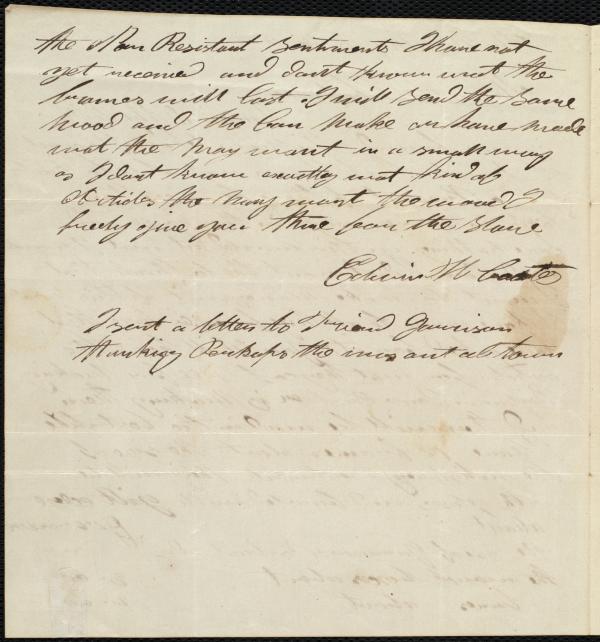 the Non Resistant sentiments I have not
yet received and dont know wat the
frames will cost I will send the same
wood and the can make or have made
wat the may want in a small way
as I dont know exactly wat kind of
Articles the may want the wood I
freely give you thine for the Slave
Edwin W
I sent a letter to Friend Garrison
thinking Perhaps the was out of town